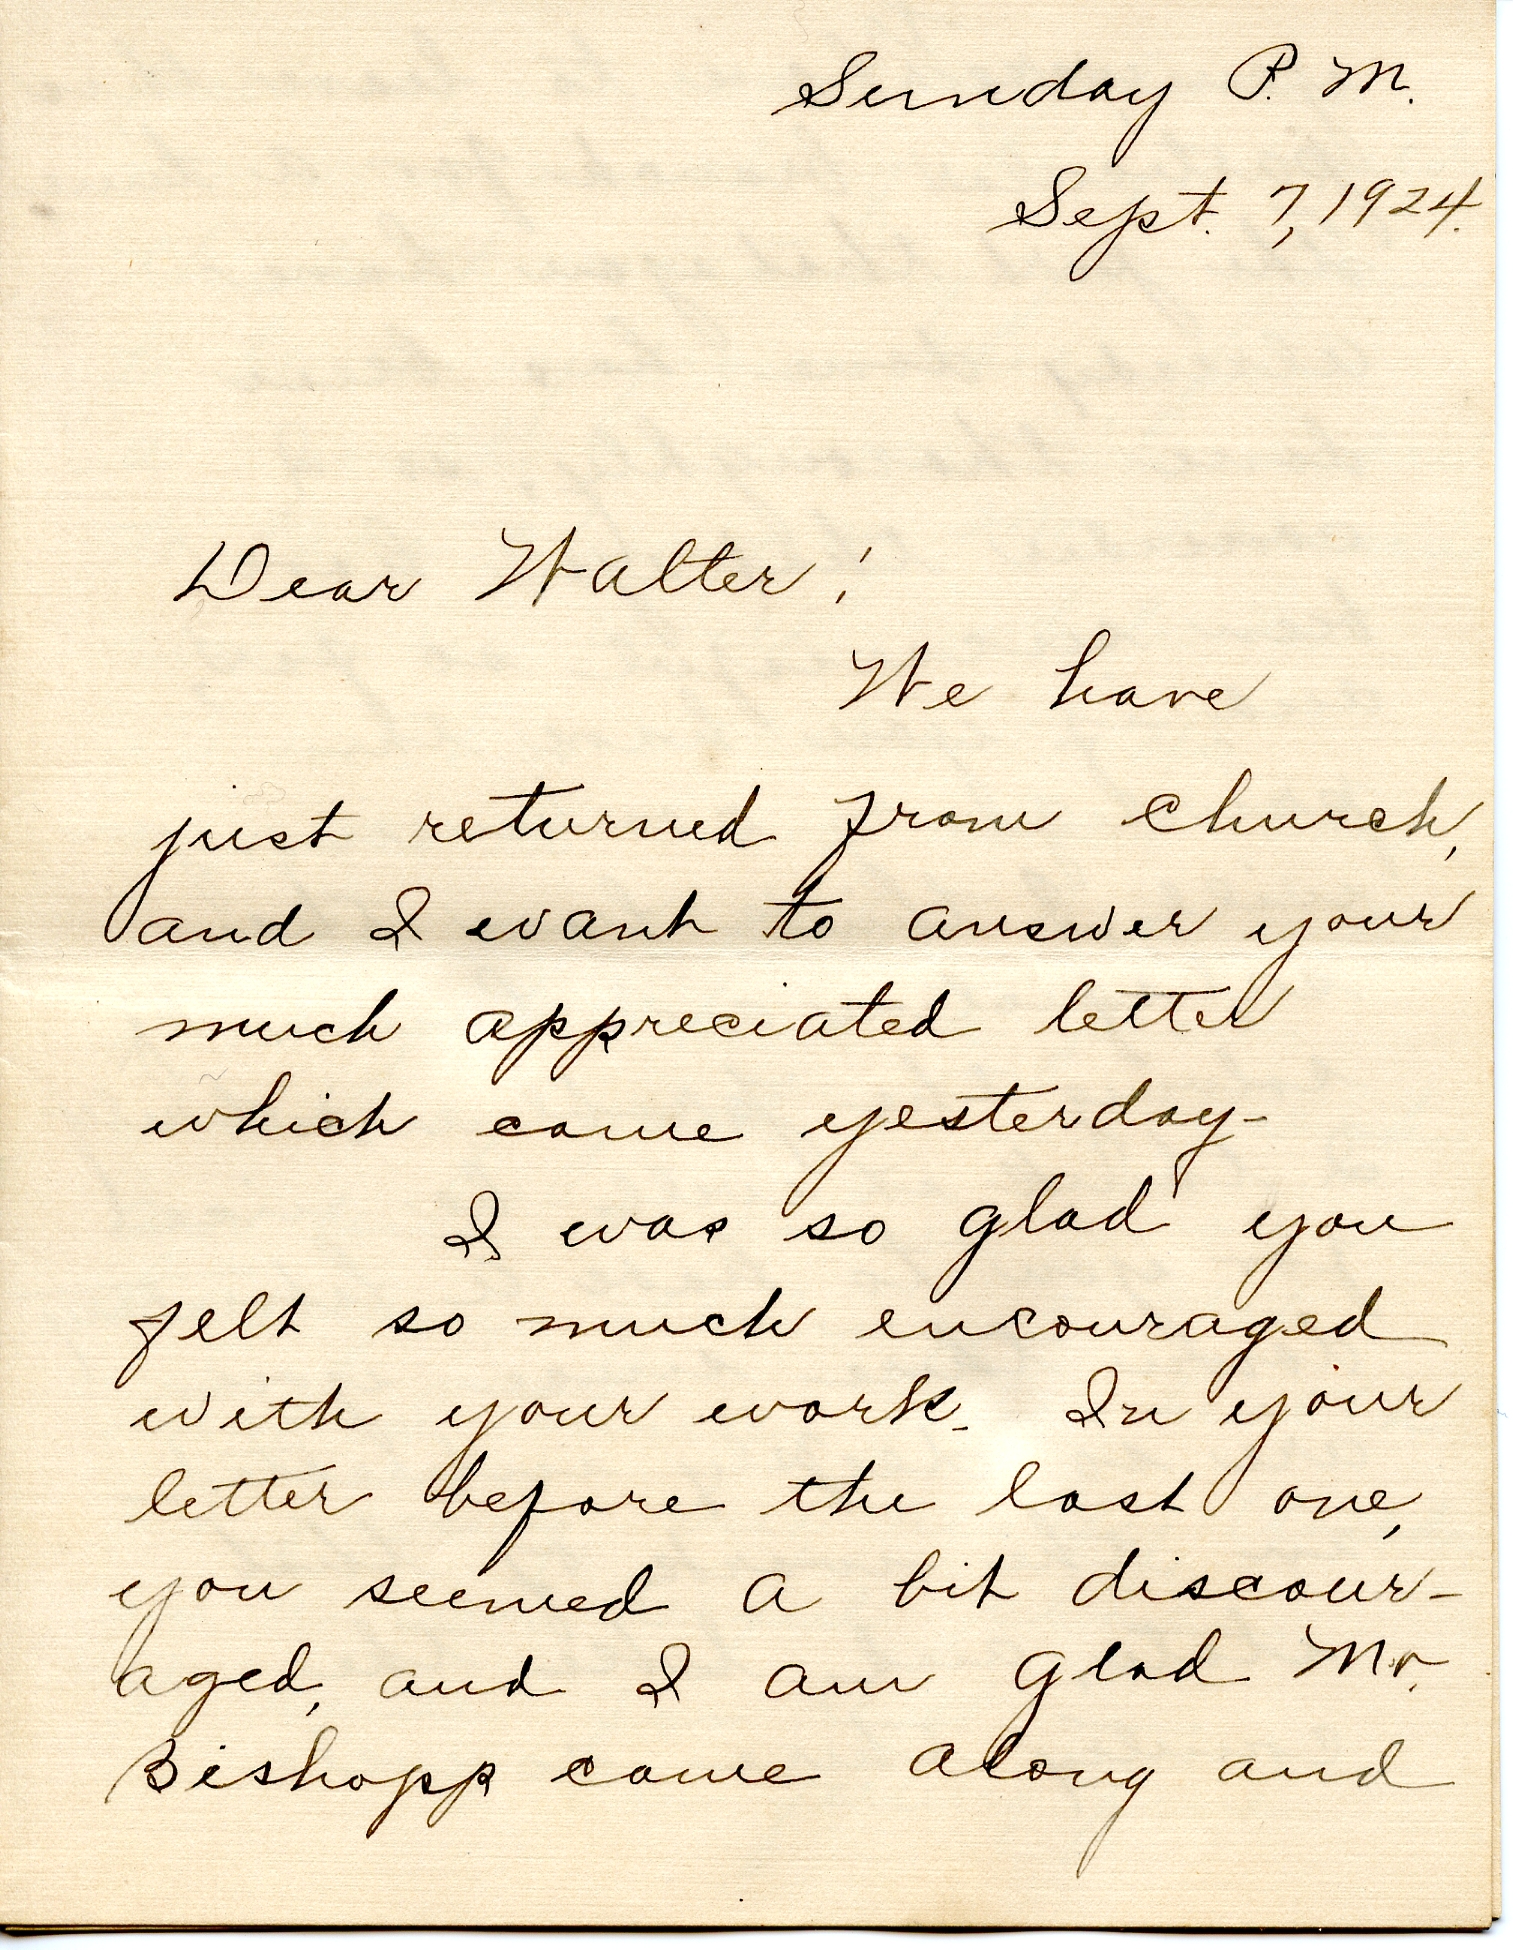 Sunday P. M.
Sept. 7, 1924.
Dear Walter:
We have
just returned from church,
and I want to answer your
much appreciated letter
which came yesterday-
I was so glad you
felt so much encouraged
with your work. In your
letter before the last one,
you seemed a bit discour-
aged, and I am glad Mr.
Bishopp came along and